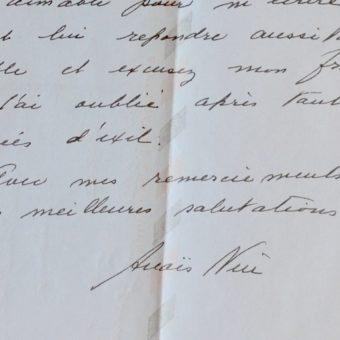 aimable pour m'écrire
t lui répondre aussit
ble et excusez mon fr
j'ai oublié après tant
ées d'exil.
Avec mes remerciements
s meilleures salutations
Anaïs Nin